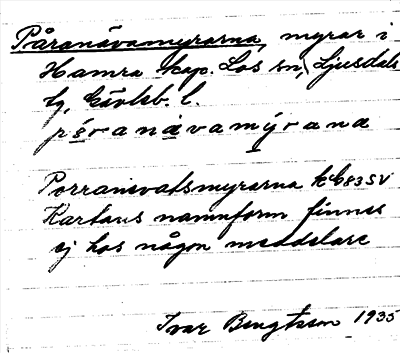 Påranävamyrarna, myrar i
Hamra kap. Los sn, Ljusdals
tg, Gävleb. l.
pɛ́ranávamỳrana
Porranisvatsmyrarna kbl 83 SV
Kartans namnform finnes
ej hos någon meddelare
Ivar Bengtsson 1935